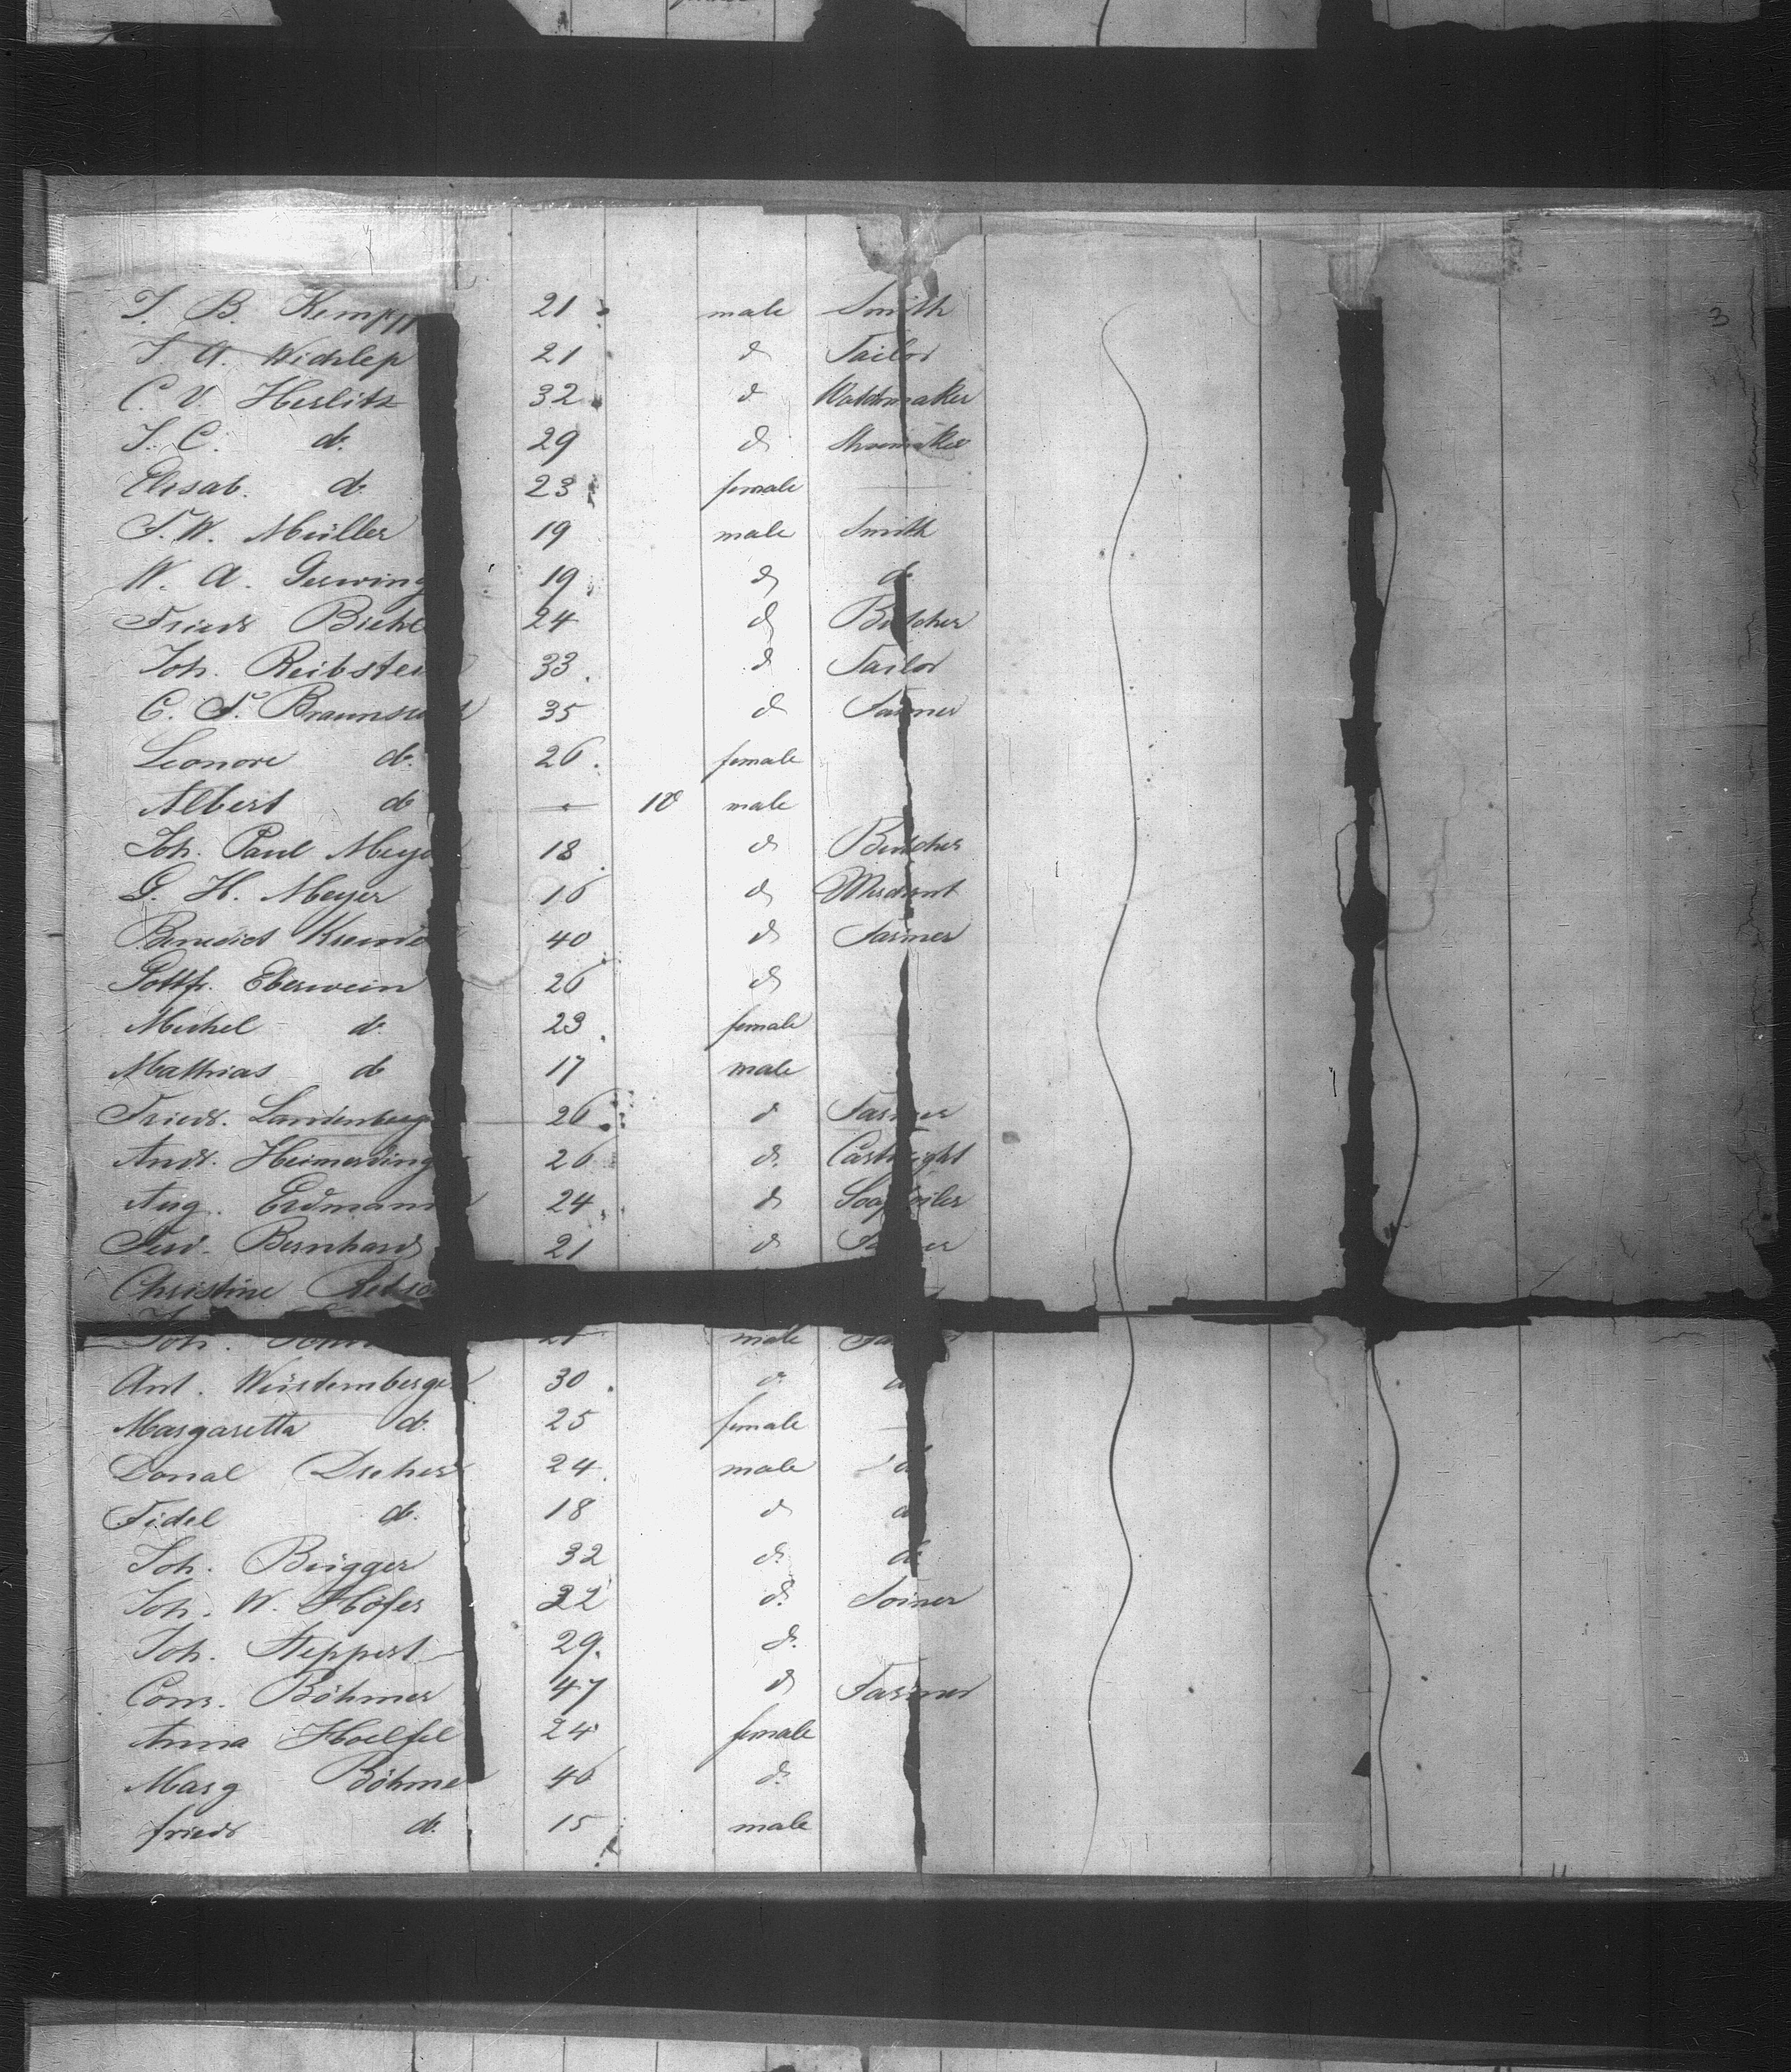 J. B. Kempf 21 male Smith
J. A. Wichlep 21 do Tailor
C. V. Herlitz 32 do Watchmaker
J. C. do. 29 do Shoemaker
Elisab. do 23 female
F. W. Müller 19 male Smith
W. A. Gerwing 19 do do
Friedr Biehl 24 do Butcher
Joh. Reibstei 33 do Tailor
C. F. Brauns 35 do Farmer
Leonore do. 26 female
Albert do — 10 male
Joh. Paul Meye 18 do Butcher
G. H. Meyer 16 do Merchant
Benedict 40 do Farmer
Gottfr. Eberwein 26 do
Michel do. 23 female
Mathias do 17 male
Friedr. Landenberg 26 do Farmer
Andr. Heimerding 26 do. Cartwright
Aug. Erdmann 24 do Soapboiler
Ferd. Bernhard 21 do
Christine
Joh. male
Ant. Würtemberger 30 do
Margaretta do. 25 female
Donal Dreher 24 male
Fidel do. 18 do
Joh. Brügger 32 do. do
Joh. W. Höfer 32 do. Joiner
Joh. Steppert 29 do.
Conr. Böhmer 47 do Farmer
Anna Hoelfel 24 female
Marg Böhme 46 do.
friedr do. 15 male
3